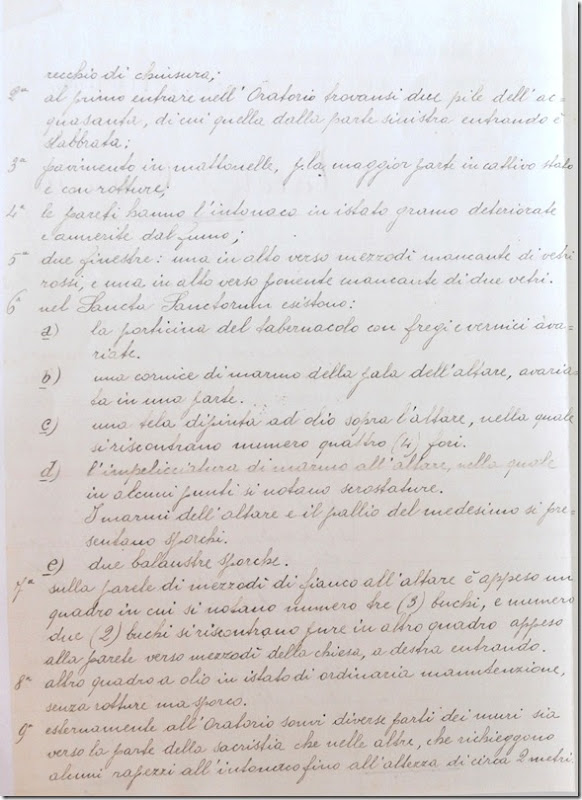 recchio di chiusura;
2ª al primo entrare nell'Oratorio trovansi due pile dell'ac-
quasanta, di cui quella dalla parte sinistra entrando è
slabbrata;
3ª pavimento in mattonelle, p. la maggior parte in cattivo stato
e con rotture;
4ª le pareti hanno l'intonaco in istato gramo deteriorate
e annerite dal fumo;
5ª due finestre: una in alto verso mezzodì mancante di vetri
rossi, e una in alto verso ponente mancante di due vetri.
6ª nel Sancta Sanctorum esistono:
a) la porticina del tabernacolo con fregi e vernici ava-
riate.
b) una cornice di marmo della pala dell'altare, avaria-
ta in una parte.
c) una tela dipinta ad olio sopra l'altare, nella quale
si riscontrano numero quattro (4) fori.
d) l'impelicciatura di marmo all'altare, nella quale
in alcuni punti si notano scrostature.
I marmi dell'altare e il pallio del medesimo si pre-
sentano sporchi.
e) due balaustre sporche.
7ª sulla parete di mezzodì di fianco all'altare è appeso un
quadro in cui si notano numero tre (3) buchi, e numero
due (2) buchi si riscontrano pure in altro quadro appeso
alla parete verso mezzodì della chiesa, a destra entrando.
8ª altro quadro a olio in istato di ordinaria manutenzione,
senza rotture ma sporco.
9ª esternamente all'Oratorio sonvi diverse parti dei muri sia
verso la parte della sacristia che nelle altre, che richieggono
alcuni rapezzi all'intonaco fino all'altezza di circa 2 metri.